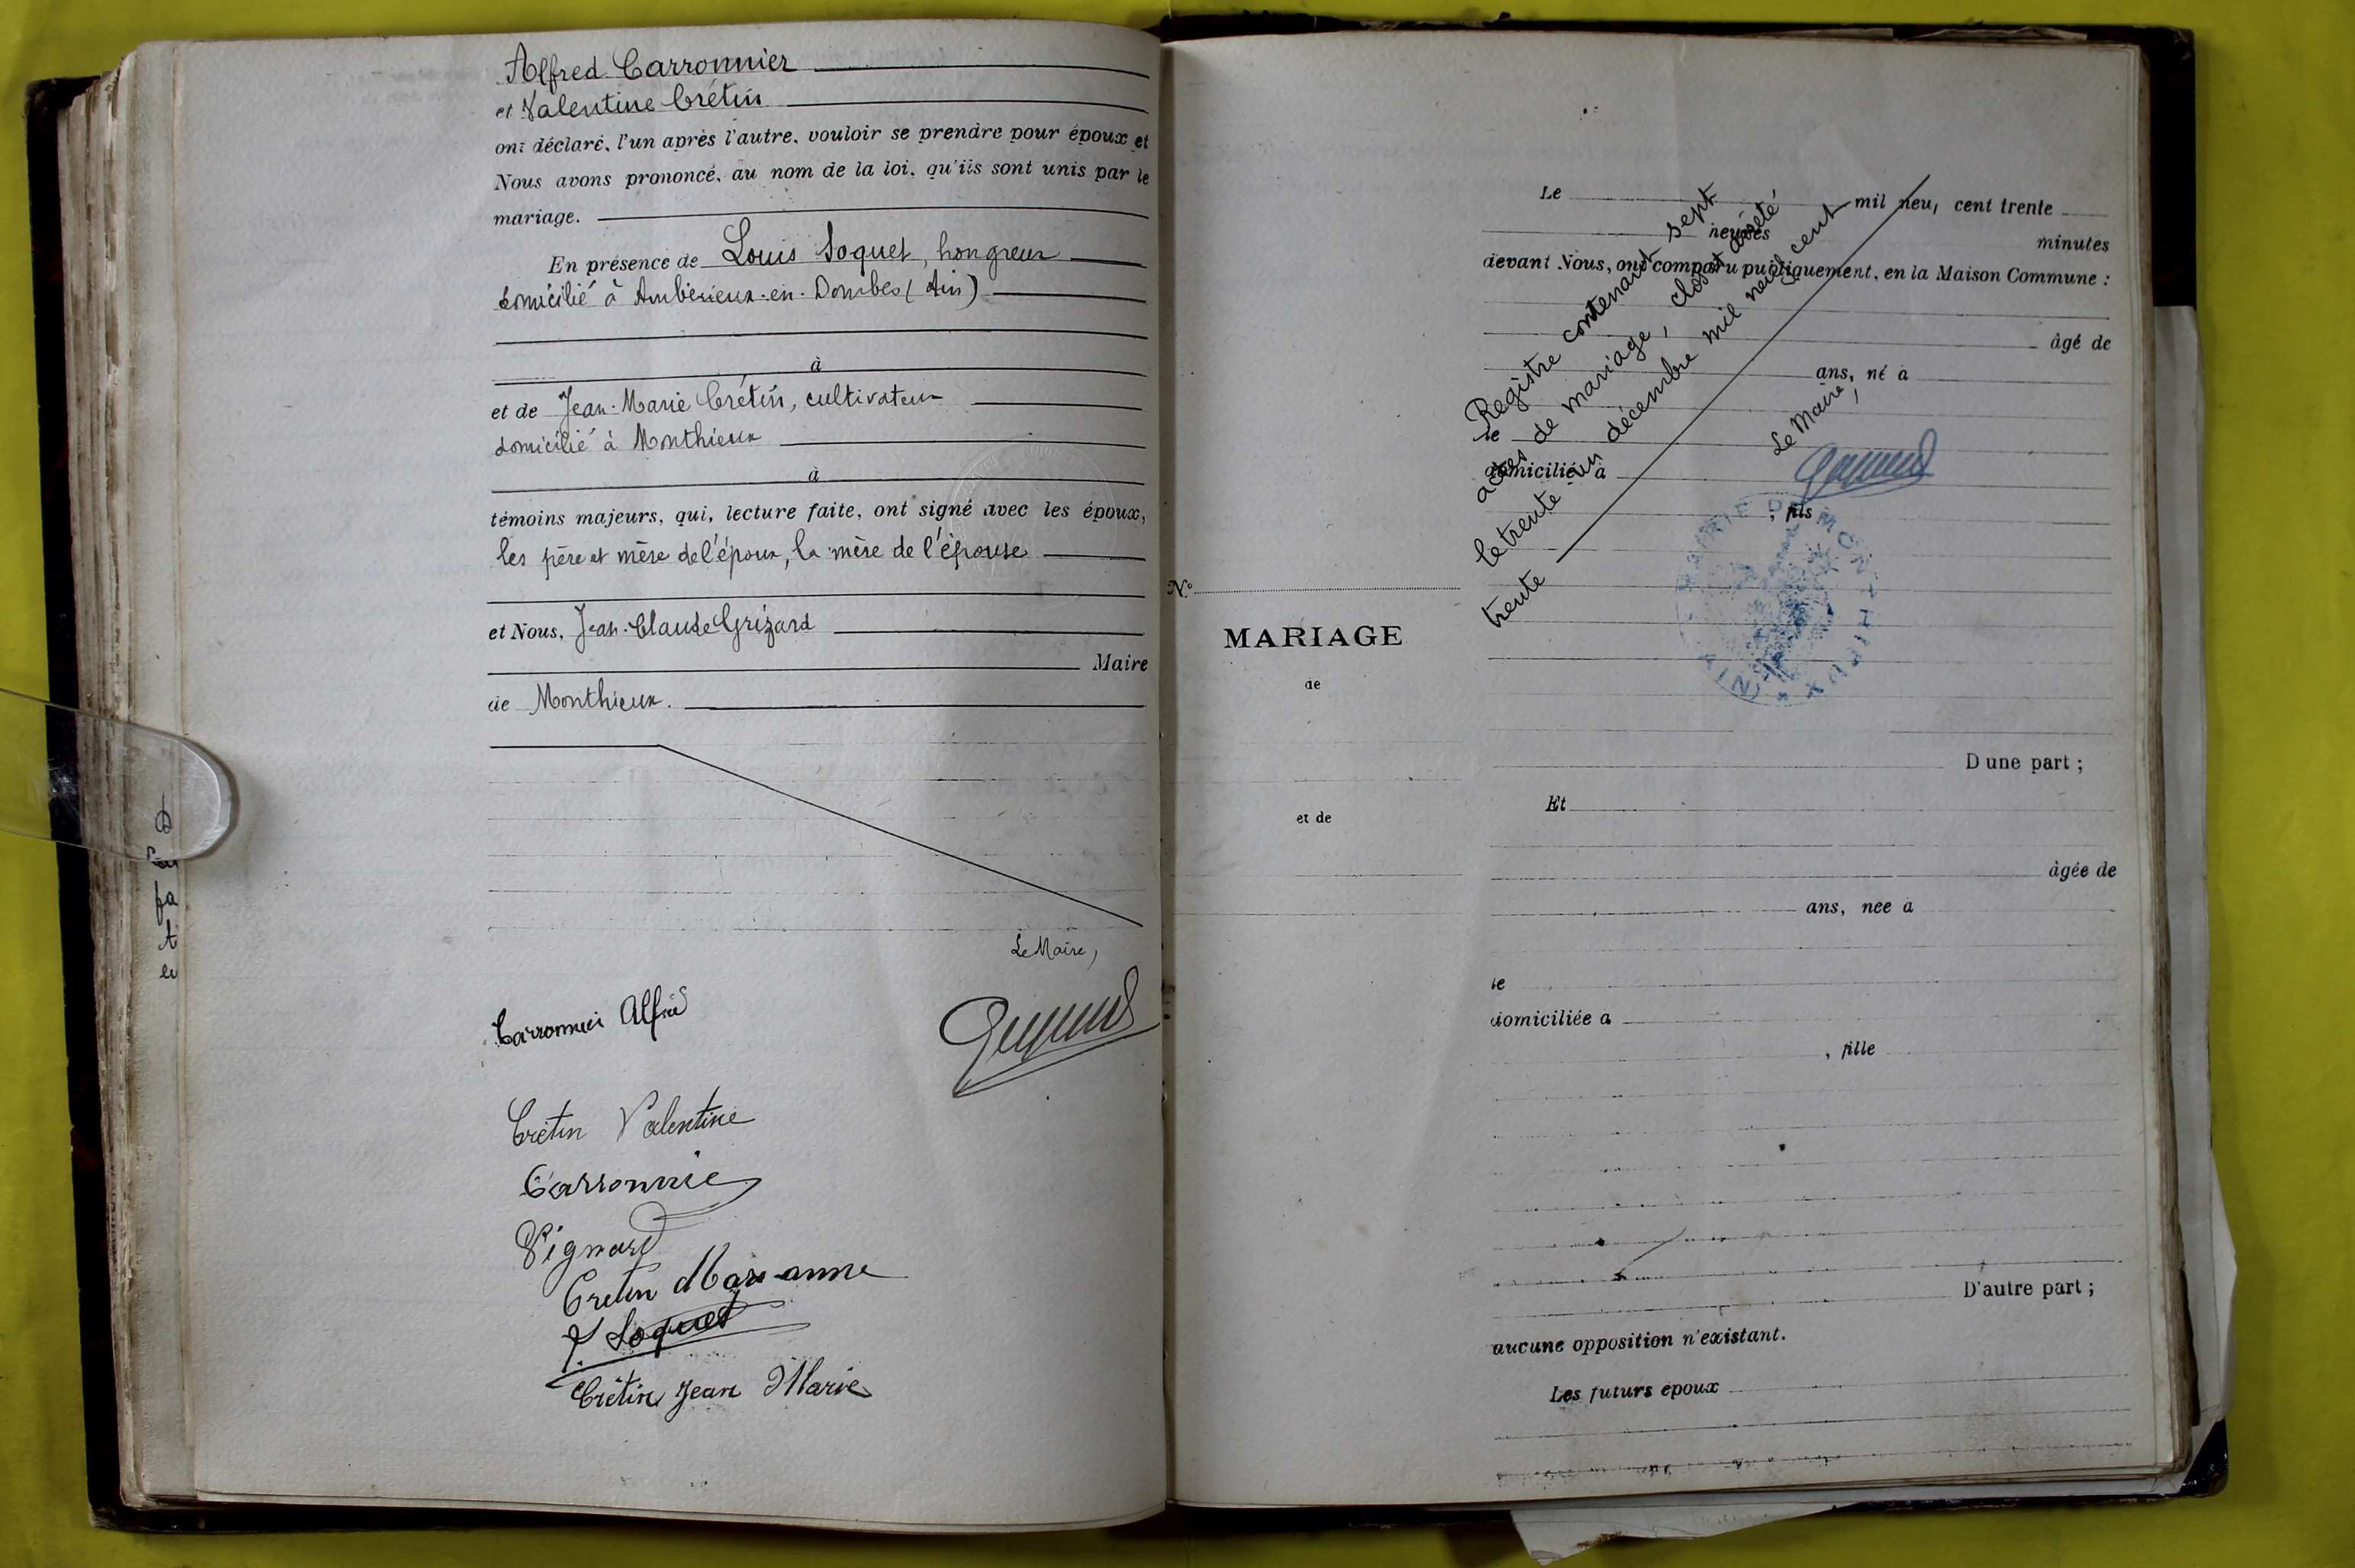 Alfred Carronnier
et Valentine Crétin
ont déclaré, l'un après l'autre, vouloir se prendre pour époux et
Nous avons prononcé, au nom de la loi, qu'ils sont unis par le
mariage.
En présence de Louis Soquet, hongreur
domicilié à Ambérieux-en-Dombes (Ain)
à
et de Jean-Marie Crétin, cultivateur
domicilié à Monthieux
à
témoins majeurs, qui, lecture faite, ont signé avec les époux,
les père et mère de l'époux, la mère de l'épouse
et Nous, Jean-Claude Grizard
Maire
de Monthieux.
Le Maire,
Carronnier Alfred
Crétin Valentine
Carronnier
Vignard
Cretin Marianne
Soquet
Crétin Jean Marie
N°
MARIAGE
de
et de
Le mil neuf cent trente
heures minutes
devant Nous, ont comparu publiquement, en la Maison Commune :
âgé de
ans, né à
le
domicilié à
, fils
Registre contenant sept
actes de mariage, clos et arrêté
le trente un décembre mil neuf cent
trente
Le Maire,
MAIRIE DE MONTHIEUX
(AIN)
D'une part ;
Et
âgée de
ans, née à
le
domiciliée à
, fille
D'autre part ;
aucune opposition n'existant.
Les futurs époux